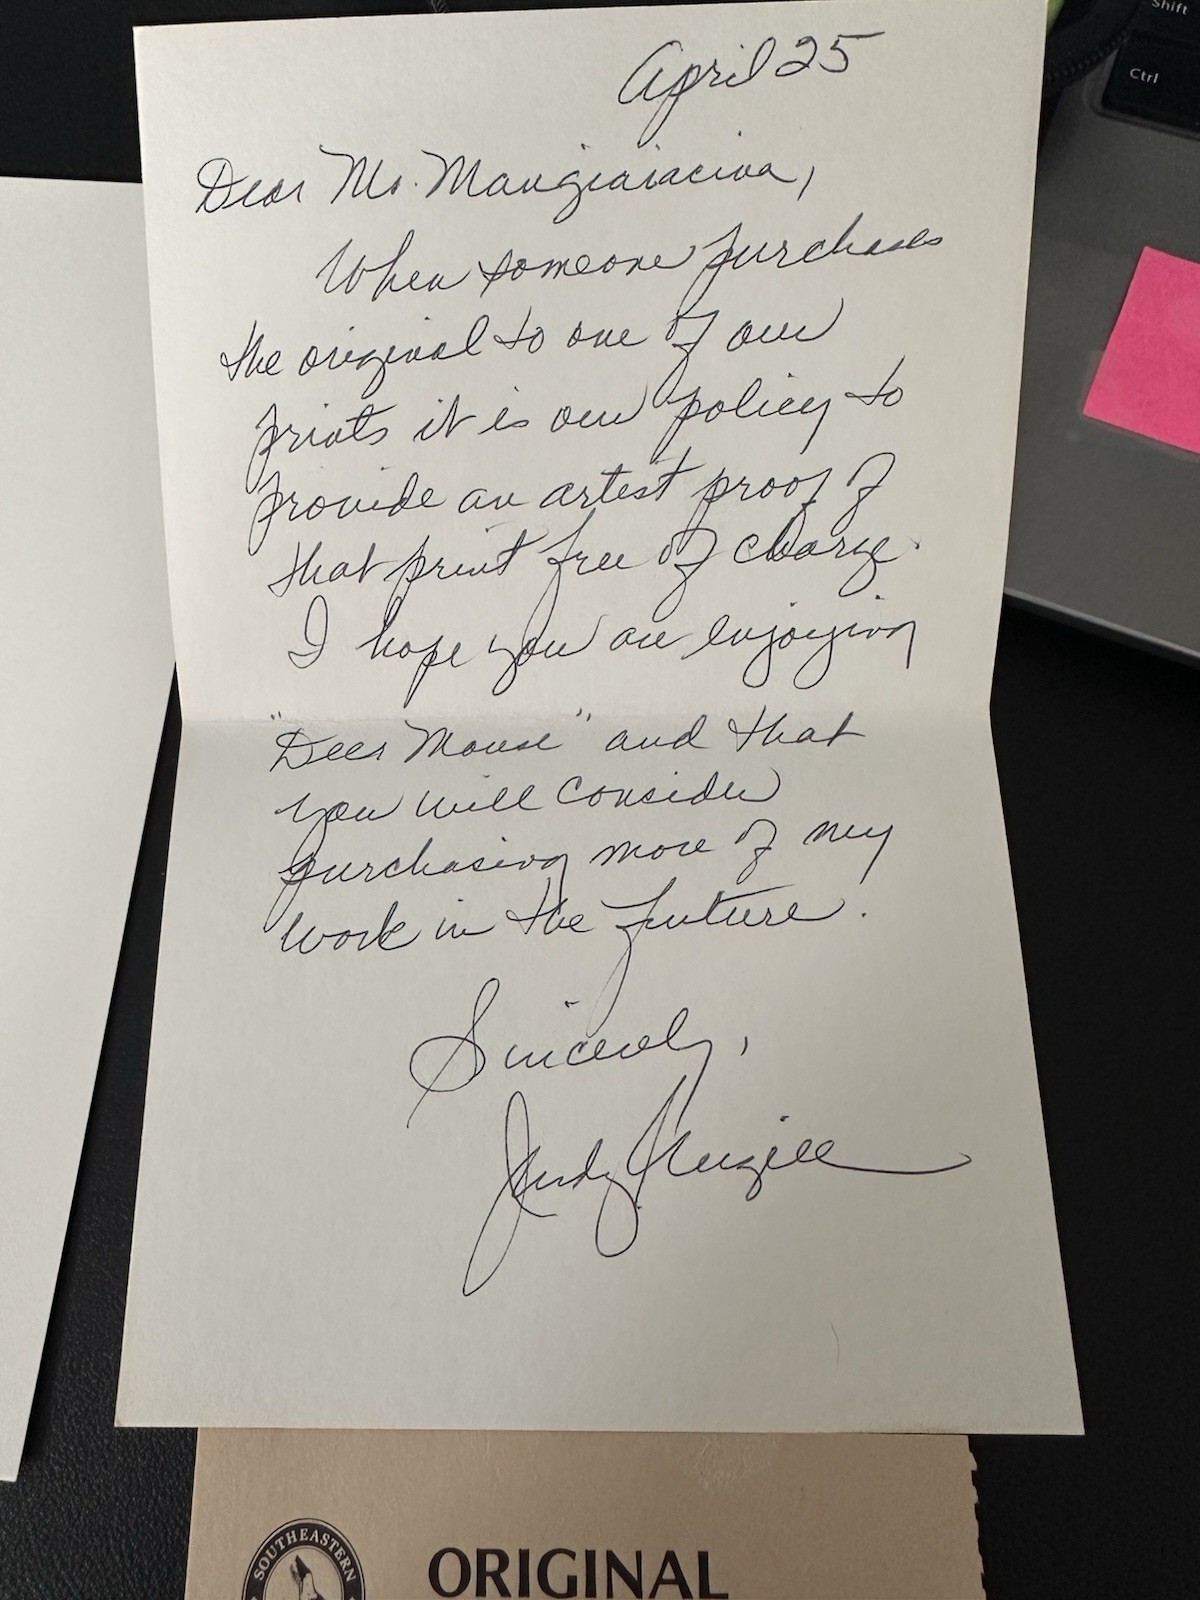 April 25
Dear Mr. Mangiaracina,
When someone purchases
the original to one of our
prints it is our policy to
provide an artist proof of
that print free of charge.
I hope you are enjoying
"Deer Mouse" and that
you will consider
purchasing more of my
work in the future.
Sincerely,
Judy
SOUTHEASTERN
ORIGINAL
Shift
Ctrl